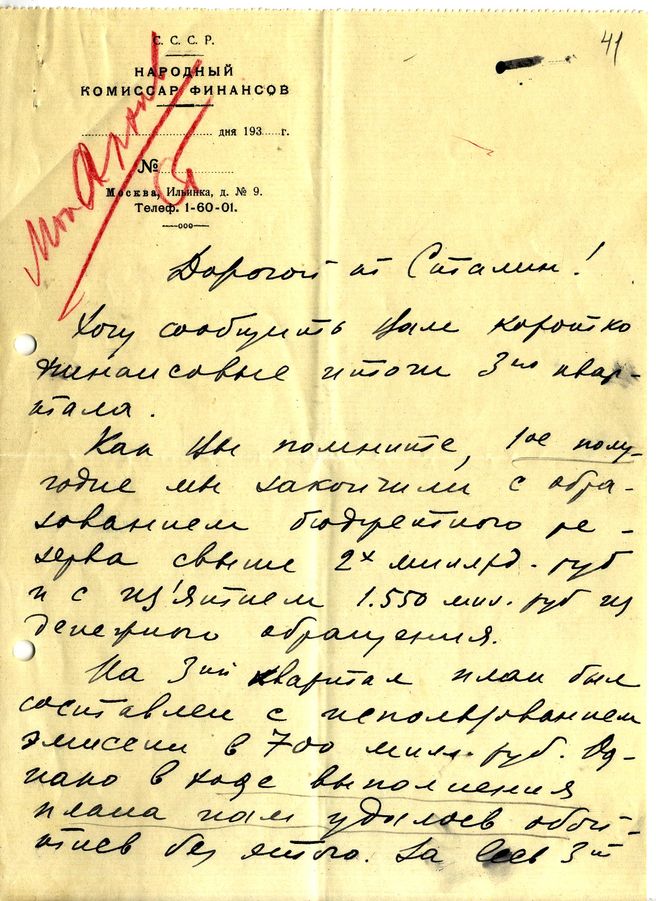 41
С. С. С. Р.
НАРОДНЫЙ
КОМИССАР ФИНАНСОВ
дня 193 г.
№
Москва, Ильинка, д. № 9.
Телеф. 1-60-01.
Мой Архив
Дорогой т Сталин!
Хочу сообщить Вам коротко
финансовые итоги 3го квар-
тала.
Как Вы помните, 1ое полу-
годие мы закончили с обра-
зованием бюджетного ре-
зерва свыше 2х миллрд. руб
и с из'ятием 1.550 мил. руб из
денежного обращения.
На 3ий квартал план был
составлен с использованием
эмиссии в 700 милл. руб. Од-
нако в ходе выполнения
плана нам удалось обой-
тись без этого. За весь 3й